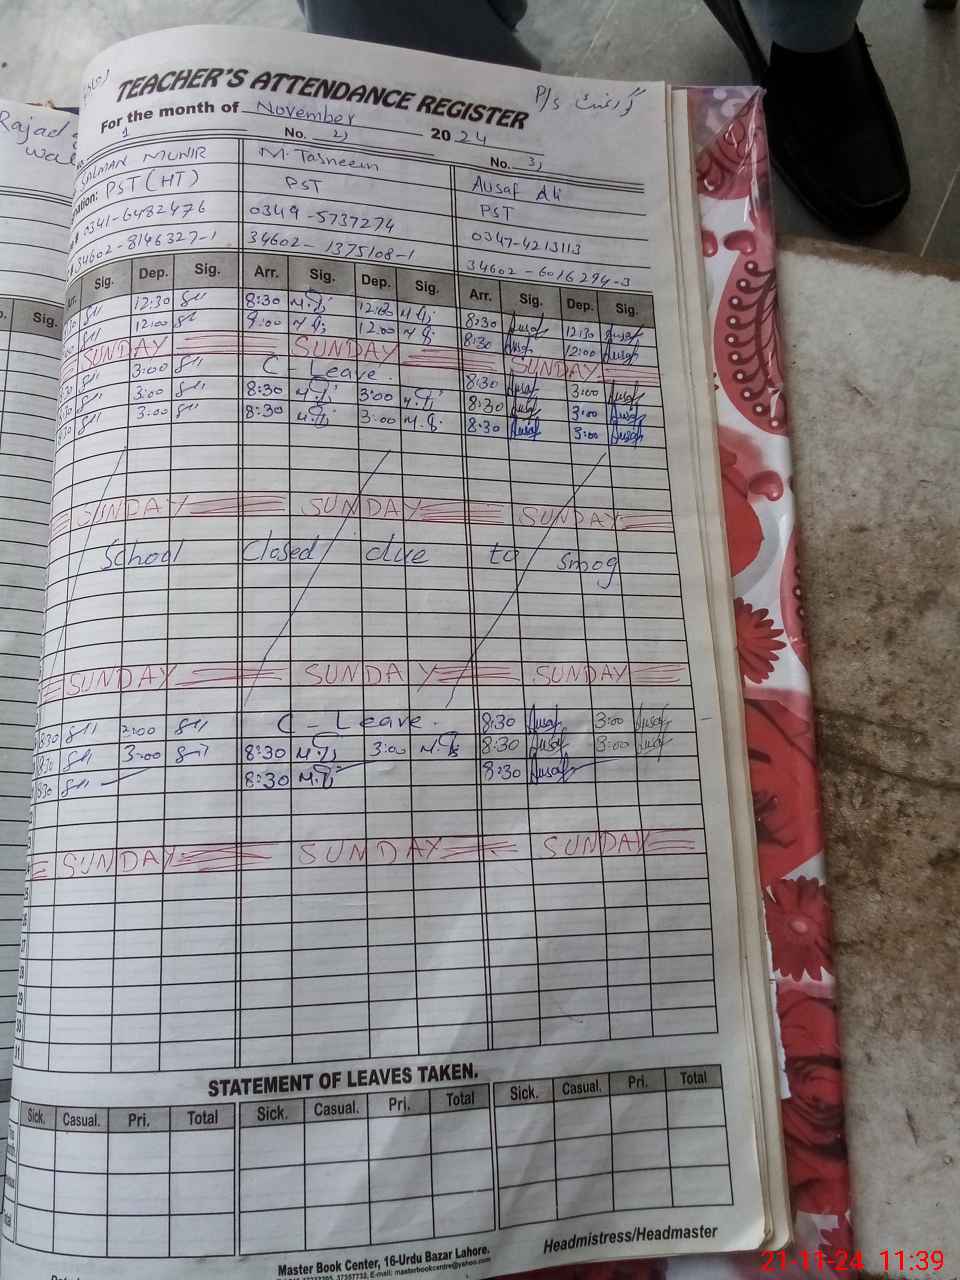 TEACHER'S ATTENDANCE REGISTER
For the month of November 2024
Rajad
No. 2) No. 3)
SALMAN MUNIR M. Tasneem Ausaf Ali
PST (HT) PST PST
0341-6482476 0349-5737274 0347-4213113
34602-8146327-1 34602-1375108-1 34602-6016294-3
Sig. Dep. Sig. Arr. Sig. Dep. Sig. Arr. Sig. Dep. Sig.
12:30 8:30 12:30 8:30 Ausaf 12:30 Ausaf
12:00 9:00 12:00 8:30 Ausaf 12:00 Ausaf
SUNDAY SUNDAY SUNDAY
3:00 C - Leave. 8:30 Ausaf 3:00 Ausaf
3:00 8:30 3:00 8:30 Ausaf 3:00 Ausaf
3:00 8:30 3:00 8:30 Ausaf 3:00 Ausaf
SUNDAY SUNDAY SUNDAY
School Closed due to smog
SUNDAY SUNDAY SUNDAY
8:30 2:00 C - Leave. 8:30 Ausaf 3:00 Ausaf
8:30 3:00 8:30 3:00 8:30 Ausaf 3:00 Ausaf
8:30 8:30 8:30 Ausaf
SUNDAY SUNDAY SUNDAY
STATEMENT OF LEAVES TAKEN.
Sick. Casual. Pri. Total Sick. Casual. Pri. Total Sick. Casual. Pri. Total
Headmistress/Headmaster
Master Book Center, 16-Urdu Bazar Lahore.
E-mail: masterbookcentre@yahoo.com
21-11-24 11:39